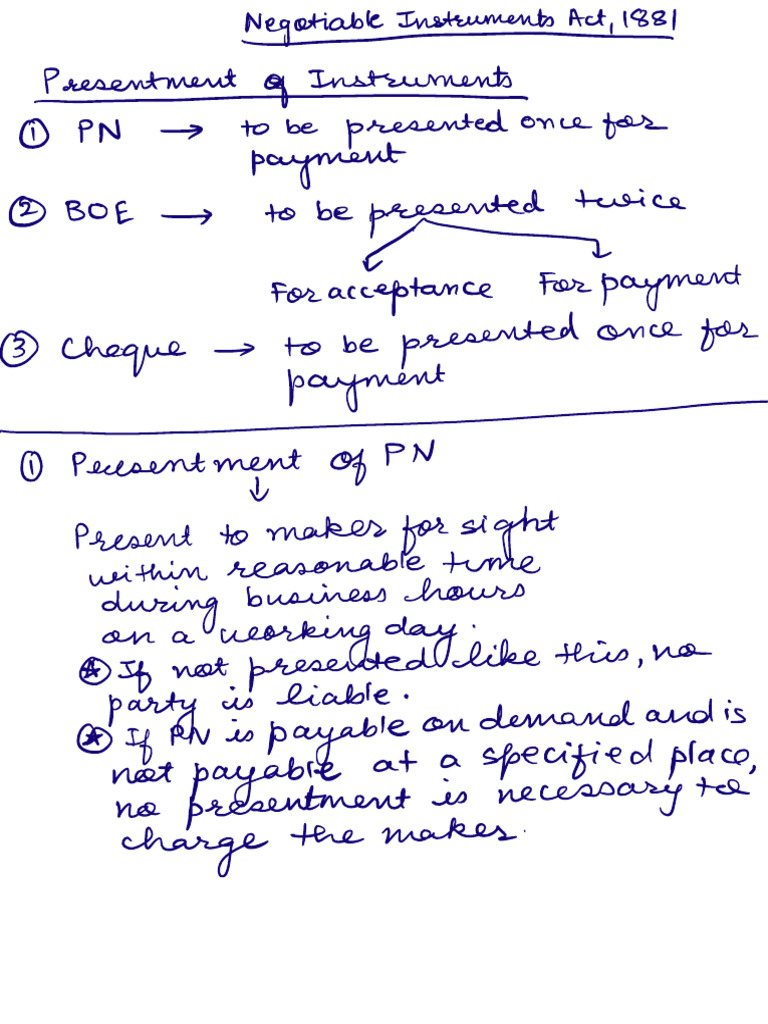 Negotiable Instruments Act, 1881
Presentment of Instruments
① PN → to be presented once for
payment
② BOE → to be presented twice
For acceptance For payment
③ Cheque → to be presented once for
payment
① Presentment of PN
↓
Present to maker for sight
within reasonable time
during business hours
on a working day.
⍟ If not presented like this, no
party is liable.
⍟ If PN is payable on demand and is
not payable at a specified place,
no presentment is necessary to
charge the maker.